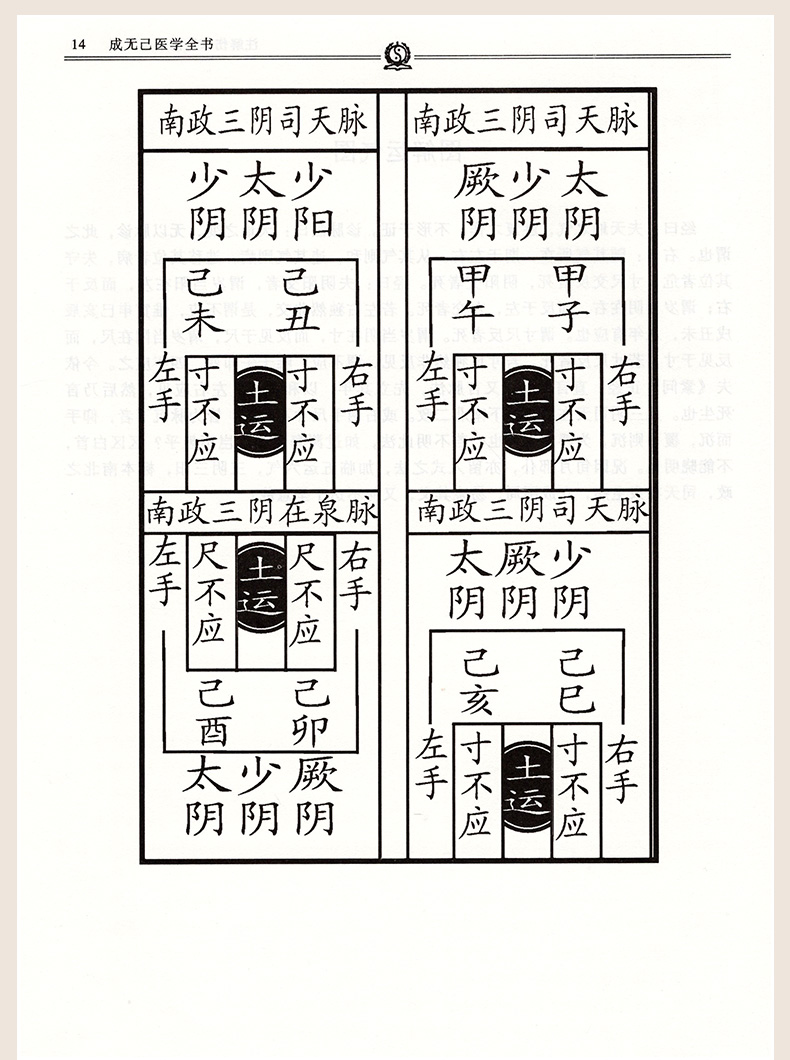 14 成无己医学全书
南政三阴司天脉
少阴
太阴
少阳
己未
己丑
左手
寸不应
土运
寸不应
右手
南政三阴在泉脉
左手
尺不应
土运
尺不应
右手
己酉
己卯
太阴
少阴
厥阴
南政三阴司天脉
厥阴
少阴
太阴
甲午
甲子
左手
寸不应
土运
寸不应
右手
南政三阴司天脉
太阴
厥阴
少阴
己亥
己巳
左手
寸不应
土运
寸不应
右手